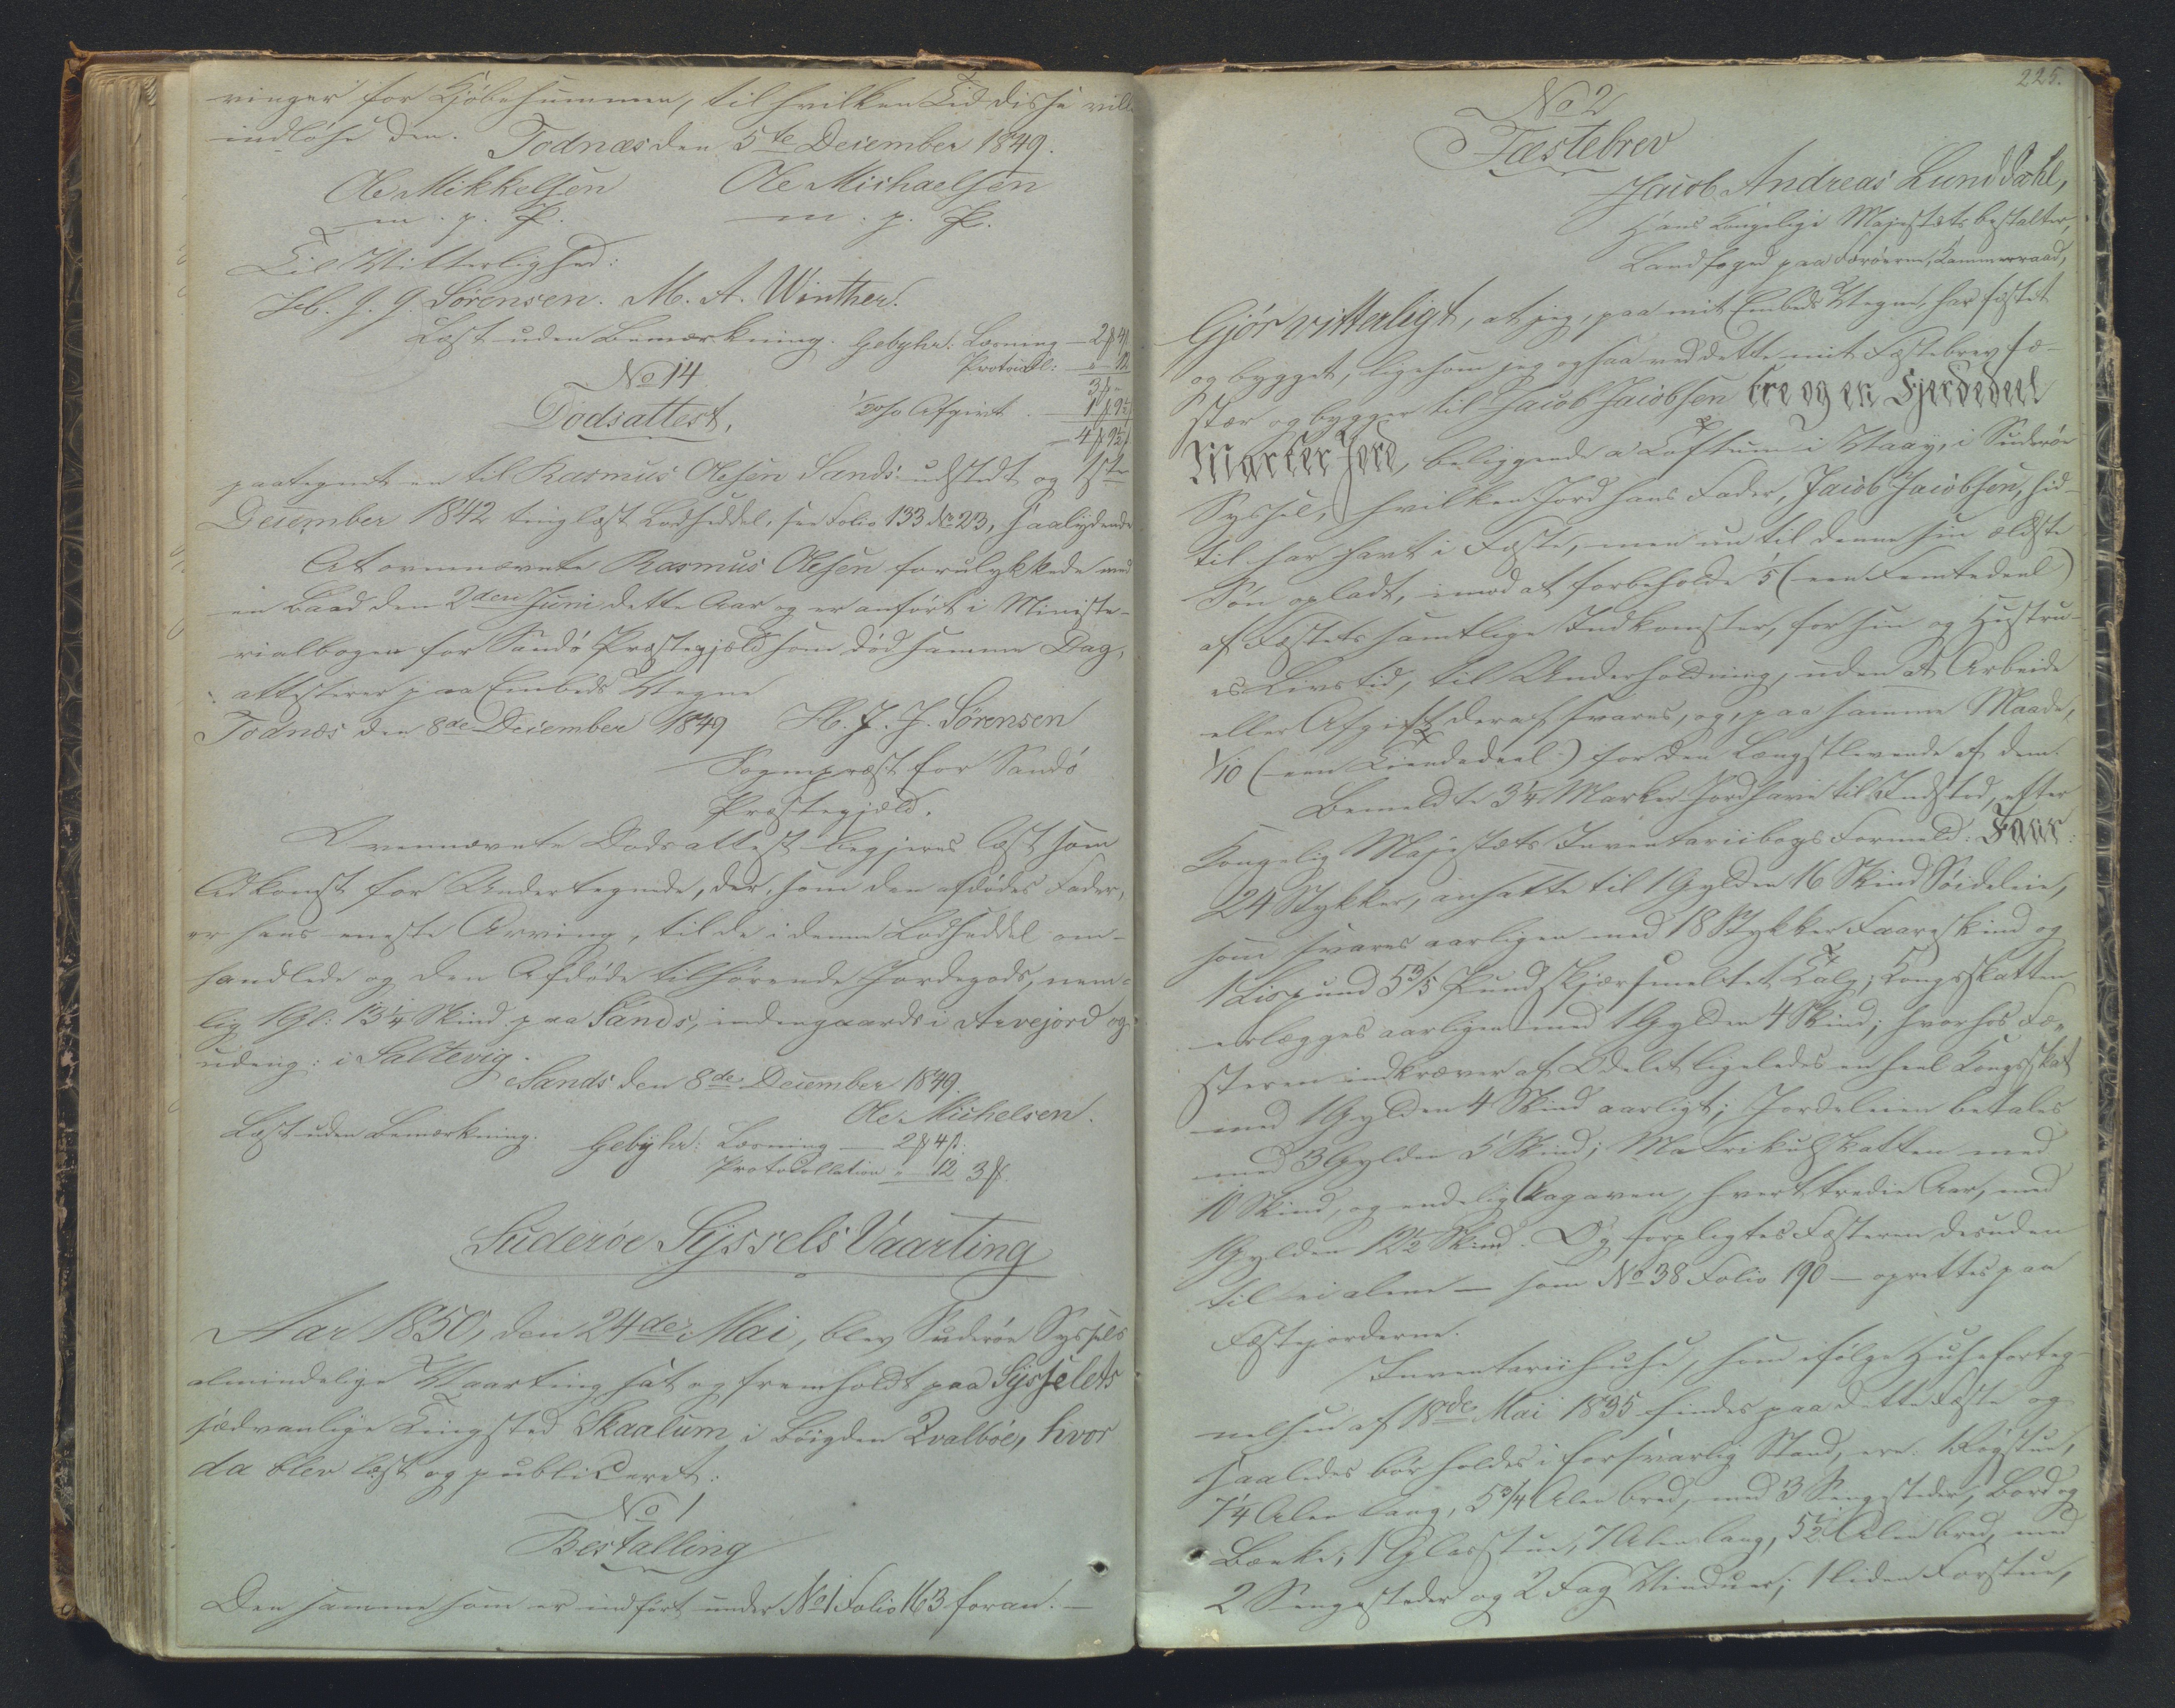 ringer for Kjöbesummen, til hvilken Tid disse vill
indlöse den. Todnæs den 5te December 1849.
Ole Mikkelsen Ole Michaelsen
m. p. P. m. p. P.
Til Vitterlighed:
H. J. J. Sörensen. M. A. Winther.
Læst uden Bemærkning. Gebyhr: Læsning — 2 4
Protocoll: " 12
3
No 14
Dödsattest, Afgivt 1 9½
4 9½
paategnet en til Rasmus Olesen Sands udstedt og 1ste
December 1842 tinglæst Lodseddel, see Folio 133 No 23, saalydende
At ovennævnte Rasmus Olesen forulykkede med
en Baad den 2den Juni dette Aar og er anført i Ministe-
rialbogen for Sandö Præstegjeld som död samme Dag,
attesterer paa Embeds Vegne
Todnæs den 8de December 1849 H. J. J. Sörensen
Sognepræst for Sandö
Præstegjeld.
Ovennævnte Dödsattest begjeres læst som
Adkomst for Undertegnede, der, som den afdödes Fader,
er hans eneste Arving, til de i denne Lodseddel om-
handlede og den Afdöde tilhörende Jordegods, nem-
lig 1 Gl: 13¼ Skind paa Sands, indengaards i Arvejord og
udeng: i Saltevig.
Sands den 8de December 1849.
Ole Michelsen.
Læst uden Bemærkning. Gebyhr: Læsning — 2 4
Protocollation " 12 3
Suderöe Syssels Vaarting
Aar 1850, den 24de Mai, blev Suderöe Syssels
almindelige Vaarting sat og fremholdt paa Sysselets
sædvanlige Tingsted Skaalum i Böigden Qvalböe, hvor
da blev læst og publiceret:
No 1
Bestalling
Den samme som er indfört under No 1 Folio 163 foran. —
225.
No 2
Fæstebrev
Jacob Andreas Lunddahl,
Hans Kongelige Majestæts bestalter
Landfoged paa Færöerne, Kammerraad,
Gjör vitterligt, at jeg, paa mit Embeds Vegne, har fæstet
og bygget, ligesom jeg ogsaa ved dette mit Fæstebrev fæ-
ster og bygger til Jacob Jacobsen tre og en Fjerdedeel
Marker Jord, beliggende a Löftum i Vaag, i Suderöe
Syssel, hvilken Jord hans Fader, Jacob Jacobsen, hid-
til har havt i Fæste, men nu til denne sin ældste
Sön opladt, imod at forbeholde 1/5 (een Femtedeel)
af Fæstets samtlige Indkomster, for sin og Hustru-
es Livstid, til Underholdning, uden at Arbeide
eller Afgift deraf svares, og, paa samme Maade,
1/10 (een Tiendedeel) for den Længstlevende af dem.
Bemeldte 3¼ Marker Jord have til Indsted, efter
Kongelig Majestæts Inventariibogs Formeld: Faar
24 Stykker, ansatte til 1 Gylden 16 Skind Söideleie,
som svares aarligen med 18 Stykker Faareskind og
1 Lispund 5 3/5 Pund skjærsmeltet Talg; Kongsskatten
erlægges aarligen med 1 Gylden 4 Skind; hvorhos Fæ-
steren indkræver af Odelet ligeledes en heel Kongsskat
med 1 Gylden 4 Skind aarligt; Jordeleien betales
med 3 Gylden 5 Skind; Matrikulskatten med
10 Skind, og endelig Tagaven, hvert tredie Aar, med
1 Gylden 12½ Skind. Og forpligtes Fæsteren desuden
til ei alene — som No 38 Folio 190 — oprettes paa
Fæstejorderne.
Inventarii huse, som ifölge Huseforteg-
nelsen af 18de Mai 1835 findes paa dette Fæste og
saaledes bör holdes i forsvarlig Stand, ere: 1 Rögstue,
7¼ Alen lang, 5¾ Alen bred, med 3 Sengesteder, Bord og
Bænke; 1 Glasstue, 7 Alen lang, 5½ Alen bred, med
2 Sengesteder og 2 Fag Vinduer; 1 liden Forstue,